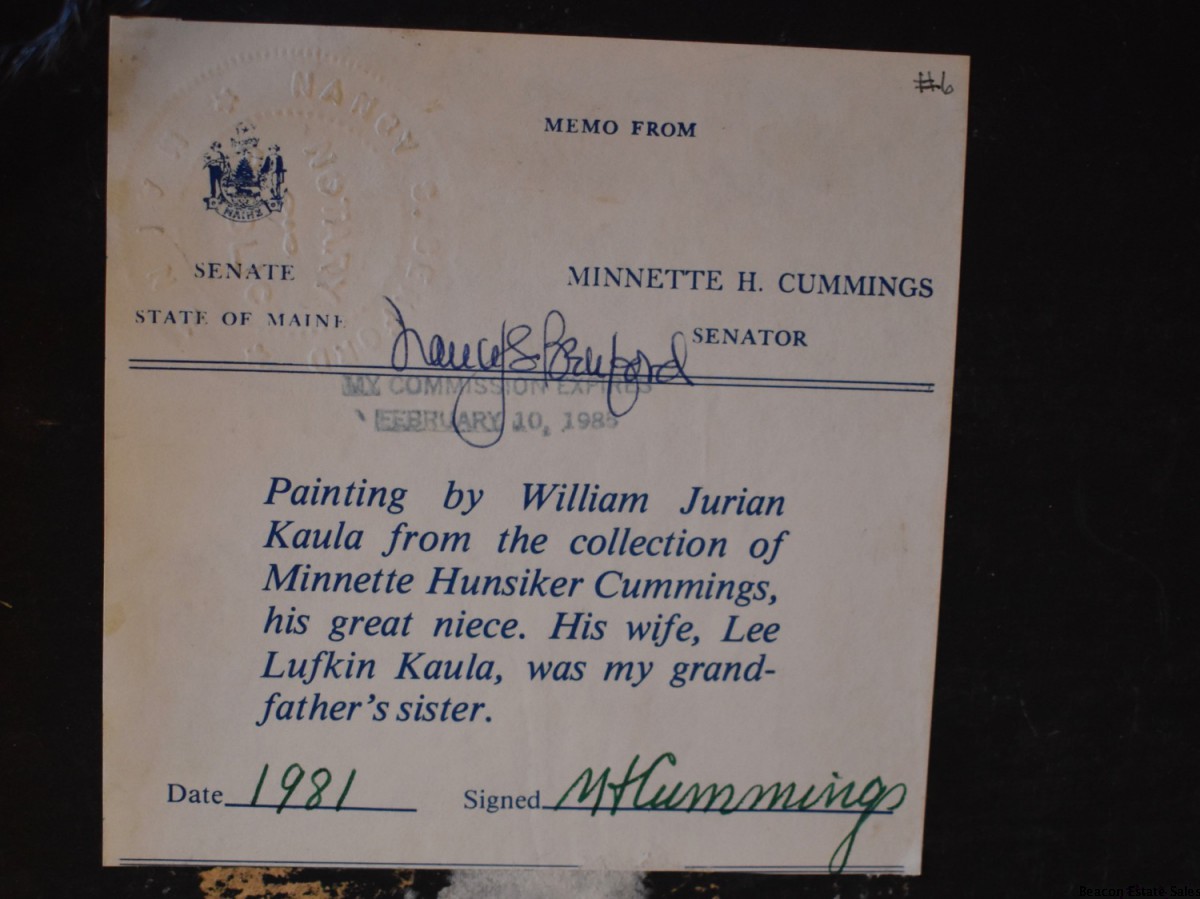 #6
MEMO FROM
NANCY S.
NOTARY
SENATE
STATE OF MAINE
MINNETTE H. CUMMINGS
SENATOR
MY COMMISSION EXPIRES
FEBRUARY 10, 1985
Painting by William Jurian
Kaula from the collection of
Minnette Hunsiker Cummings,
his great niece. His wife, Lee
Lufkin Kaula, was my grand-
father's sister.
Date 1981
Signed MHCummings
Beacon Estate Sales